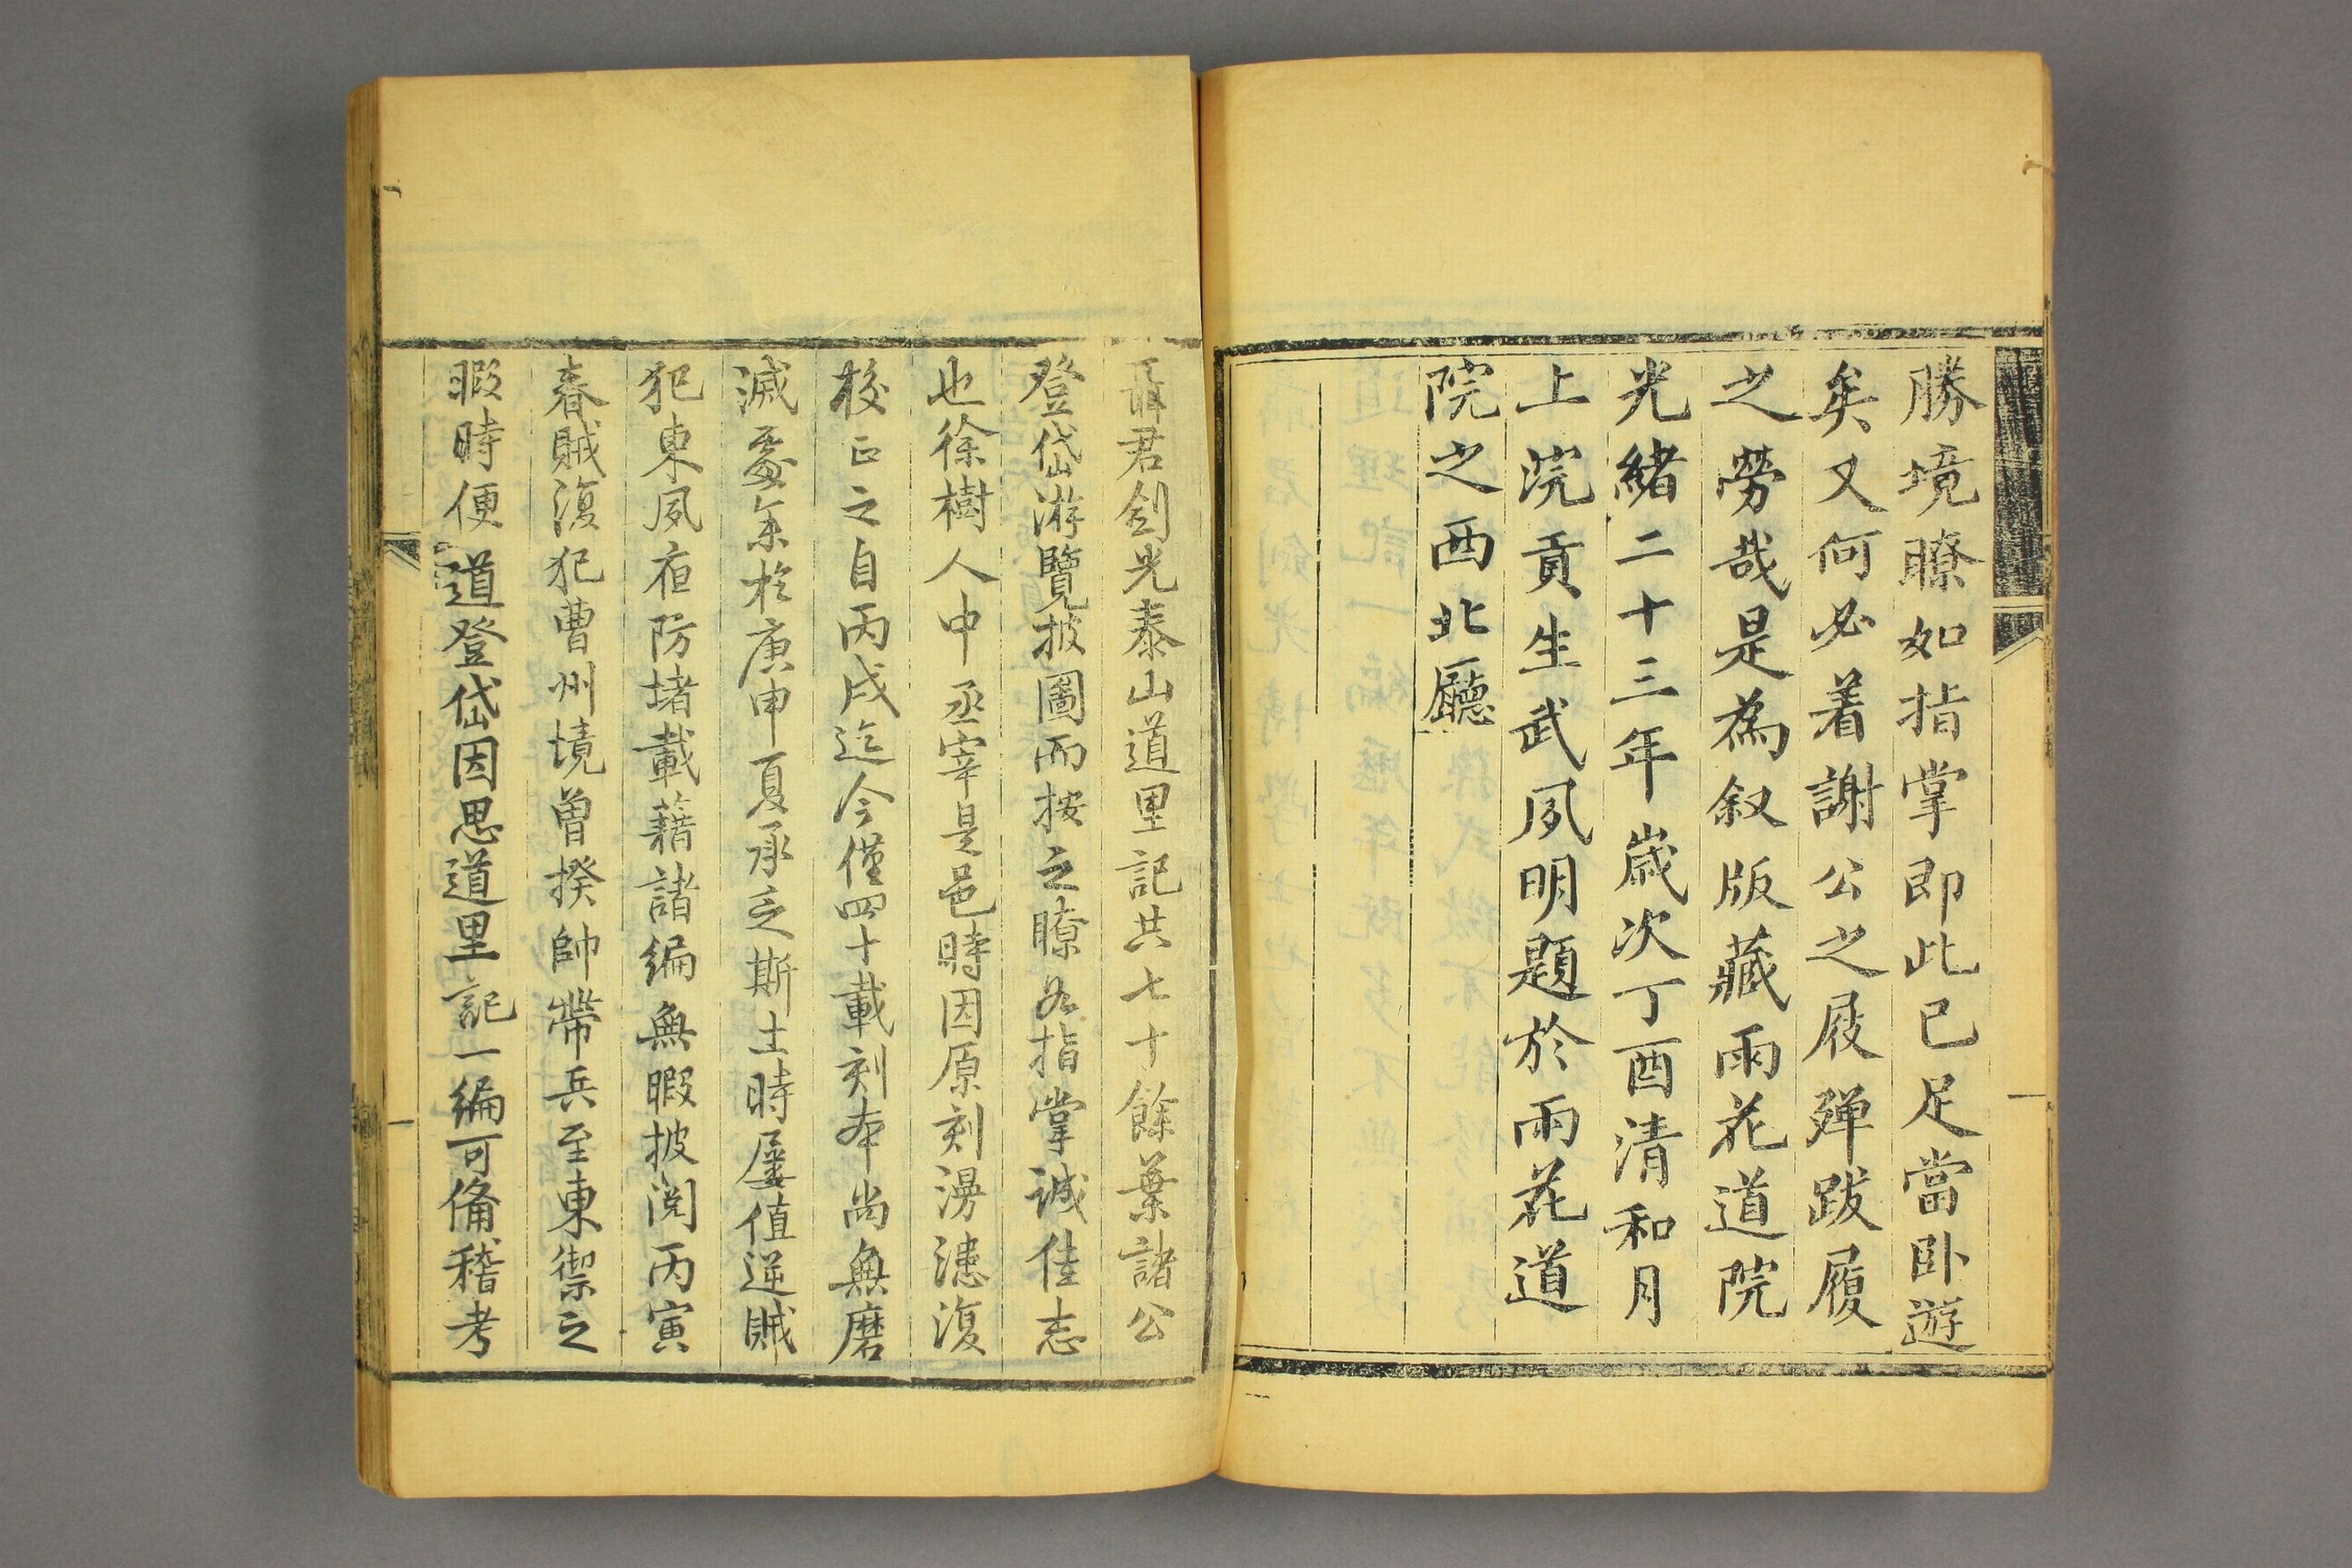 勝境瞭如指掌即此已足當臥遊
矣又何必着謝公之屐殫跋履
之勞哉是為叙版藏雨花道院
光緒二十三年歲次丁酉清和月
上浣貢生武夙明題於雨花道
院之西北廳
聶君劍光泰山道里記共七十餘葉諸公
登岱游覽披圖而按之瞭如指掌誠佳志
也徐樹人中丞宰是邑時因原刻漫漶復
校正之自丙戌迄今僅四十載刻本尚無磨
滅處余於庚申夏承乏斯土時屢值逆賊
犯東夙夜防堵載藉諸編無暇披閱丙寅
春賊復犯曹州境曾揆帥帶兵至東禦之
暇時便道登岱因思道里記一編可備稽考